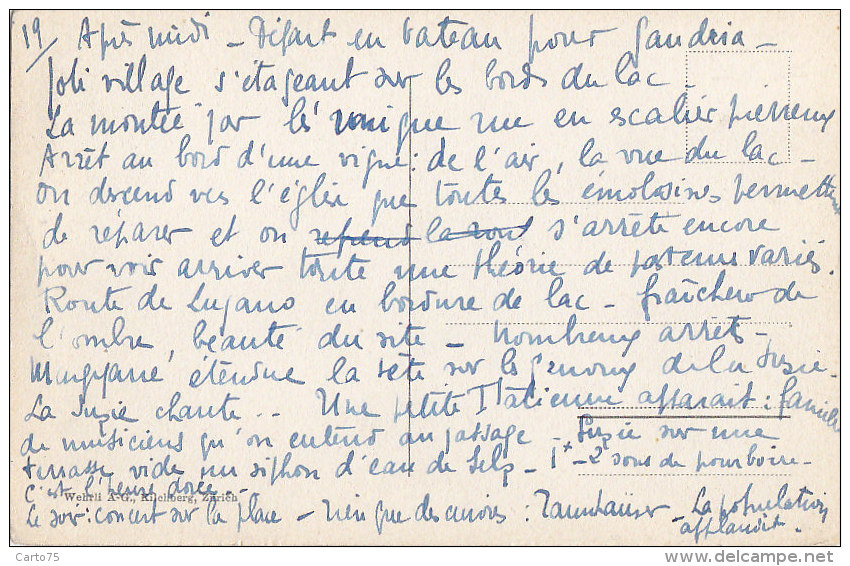 19/ Après midi – Départ en bateau pour Gandria –
Joli village s'étageant sur les bords du lac –
La montée par les unique rue en escalier pierreux
Arrêt au bord d'une vigne : de l'air, la vue du lac –
On descend vers l'église que toutes les permettent
de réparer et on reprend la rout s'arrête encore
pour voir arriver toute une théorie de varies.
Route de Lugano en bordure de lac – fraîcheur de
l'ombre, beauté du site – nombreux arrêts –
étendue la tête sur les genoux de la Suzie –
La Suzie chante .. Une petite Italienne apparait : famille
de musiciens qu'on entend au passage – Suzie sur une
terrasse vide un siphon d'eau de Selz – 1x – 2 sous de pourboire –
C'est l'heure dorée –
Wehrli A-G., Kilchberg, Zürich
Le soir : concert sur la place – rien que des cuivres : Tannhäuser – La population
applaudit.
Carto75
delcampe.net